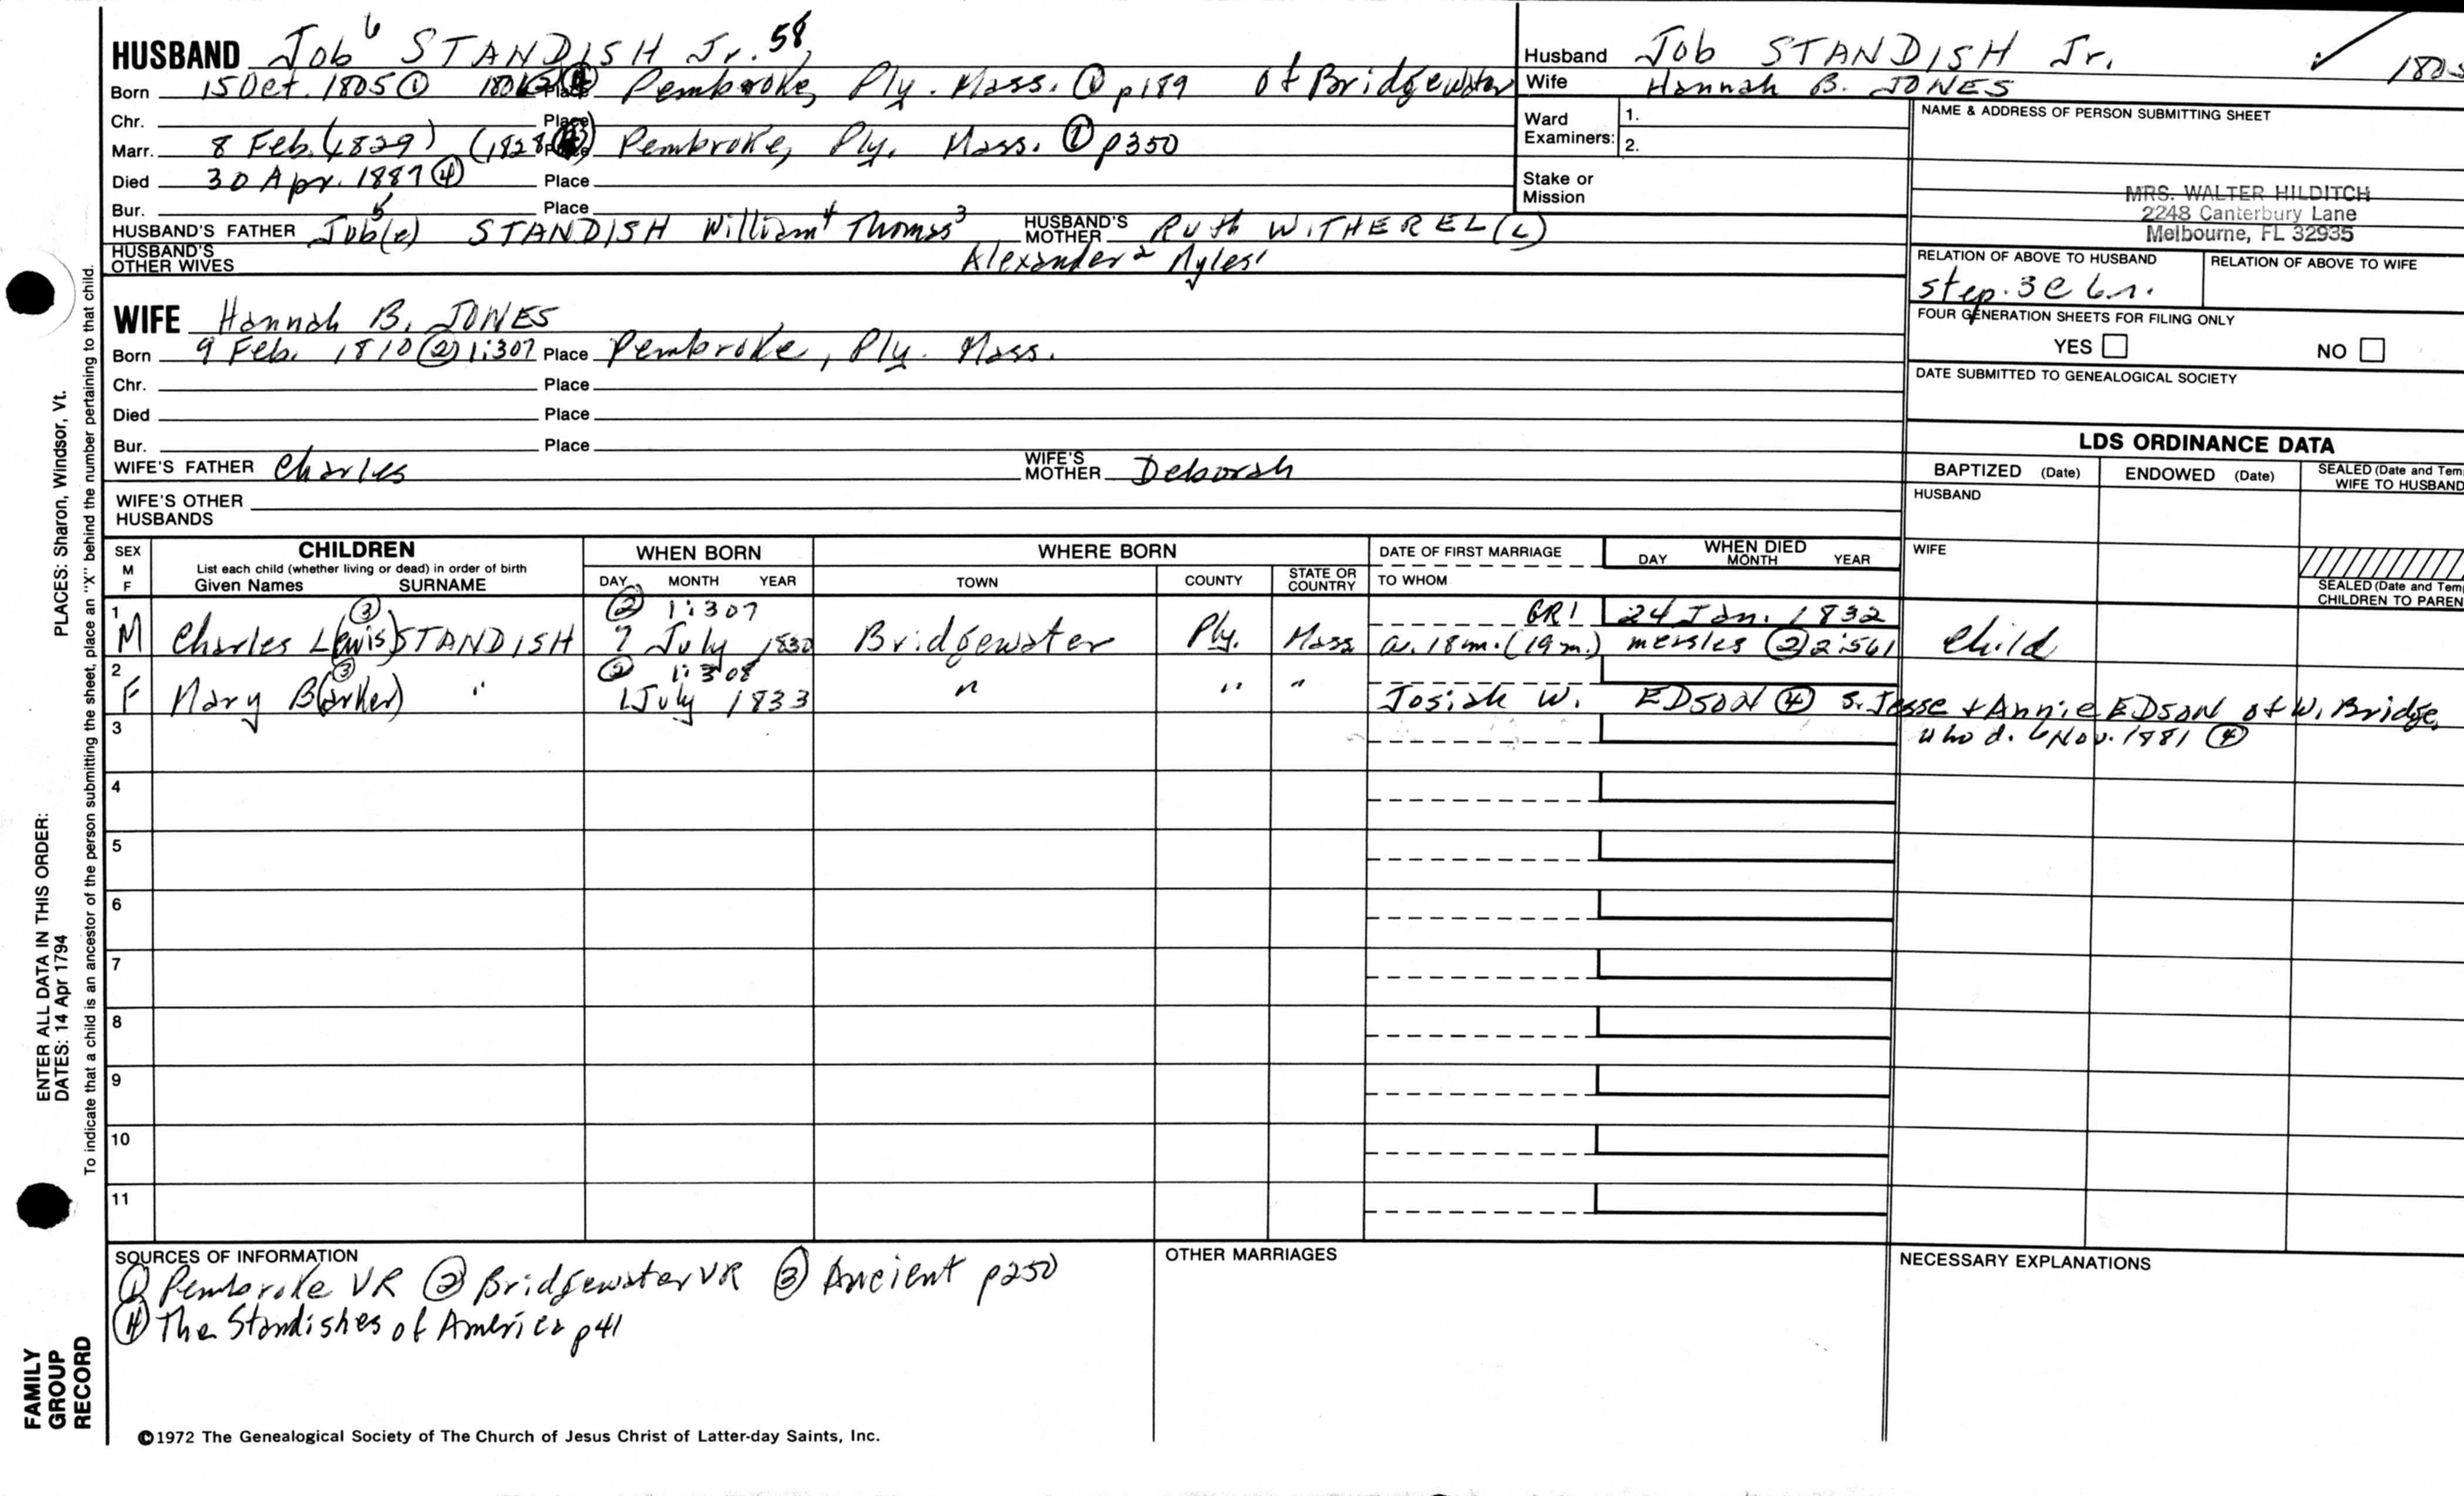 HUSBAND Job 6 STANDISH Jr. 58
Born 15 Oct. 1805 ① Place Pembroke, Ply. Mass. ① p189 of Bridgewater
Chr. Place
Marr. 8 Feb. (1829) (1828 Place Pembroke, Ply. Mass. ① p350
Died 30 Apr. 1887 ④ Place
Bur. Place
HUSBAND'S FATHER Job(e) 5 STANDISH William 4 Thomas 3 HUSBAND'S MOTHER Ruth WITHEREL(L)
HUSBAND'S OTHER WIVES Alexander 2 Myles 1
WIFE Hannah B. JONES
Born 9 Feb. 1810 ② 1:307 Place Pembroke, Ply. Mass.
Chr. Place
Died Place
Bur. Place
WIFE'S FATHER Charles WIFE'S MOTHER Deborah
WIFE'S OTHER HUSBANDS
Husband Job STANDISH Jr. ✓ 1805
Wife Hannah B. JONES
Ward Examiners: 1.
2.
Stake or Mission
NAME & ADDRESS OF PERSON SUBMITTING SHEET
MRS. WALTER HILDITCH
2248 Canterbury Lane
Melbourne, FL 32935
RELATION OF ABOVE TO HUSBAND RELATION OF ABOVE TO WIFE
step. 3c 6r.
FOUR GENERATION SHEETS FOR FILING ONLY
YES NO
DATE SUBMITTED TO GENEALOGICAL SOCIETY
LDS ORDINANCE DATA
BAPTIZED (Date) ENDOWED (Date) SEALED (Date and Tem
WIFE TO HUSBAND
HUSBAND
WIFE
SEALED (Date and Tem
CHILDREN TO PAREN
SEX M F
CHILDREN
List each child (whether living or dead) in order of birth
Given Names SURNAME
WHEN BORN
DAY MONTH YEAR
WHERE BORN
TOWN COUNTY STATE OR COUNTRY
DATE OF FIRST MARRIAGE
TO WHOM
WHEN DIED
DAY MONTH YEAR
1 ③ ② 1:307 GR1 24 Jan. 1832
M Charles L(ewis) STANDISH 7 July 1830 Bridgewater Ply. Mass a. 18m. (19m.) measles ② 2:561 Child
2 ③ ② 1:308
F Mary B(arker) " 1 July 1833 " " " Josiah W. EDSON ④ s. Jesse + Annie EDSON of W. Bridge.
who d. 6 Nov. 1881 ④
3
4
5
6
7
8
9
10
11
SOURCES OF INFORMATION
① Pembroke VR ② Bridgewater VR ③ Ancient p250
④ The Standishes of America p41
OTHER MARRIAGES
NECESSARY EXPLANATIONS
©1972 The Genealogical Society of The Church of Jesus Christ of Latter-day Saints, Inc.
PLACES: Sharon, Windsor, Vt.
ENTER ALL DATA IN THIS ORDER:
DATES: 14 Apr 1794
To indicate that a child is an ancestor of the person submitting the sheet, place an "X" behind the number pertaining to that child.
FAMILY
GROUP
RECORD